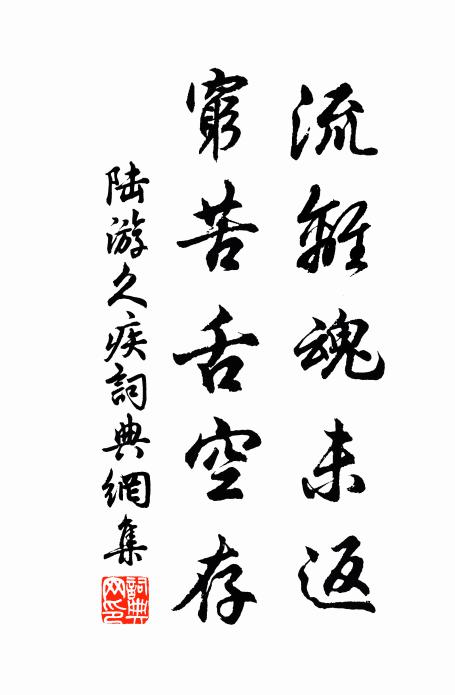 流離魂未返
窮苦舌空存
陸游久疾詞典網集
詞典網印